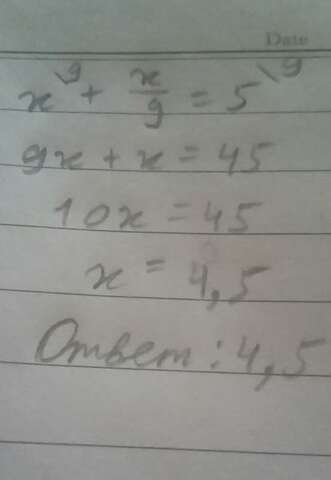 Date
x\9 + x/9 = 5\9
9x + x = 45
10x = 45
x = 4,5
Ответ: 4,5